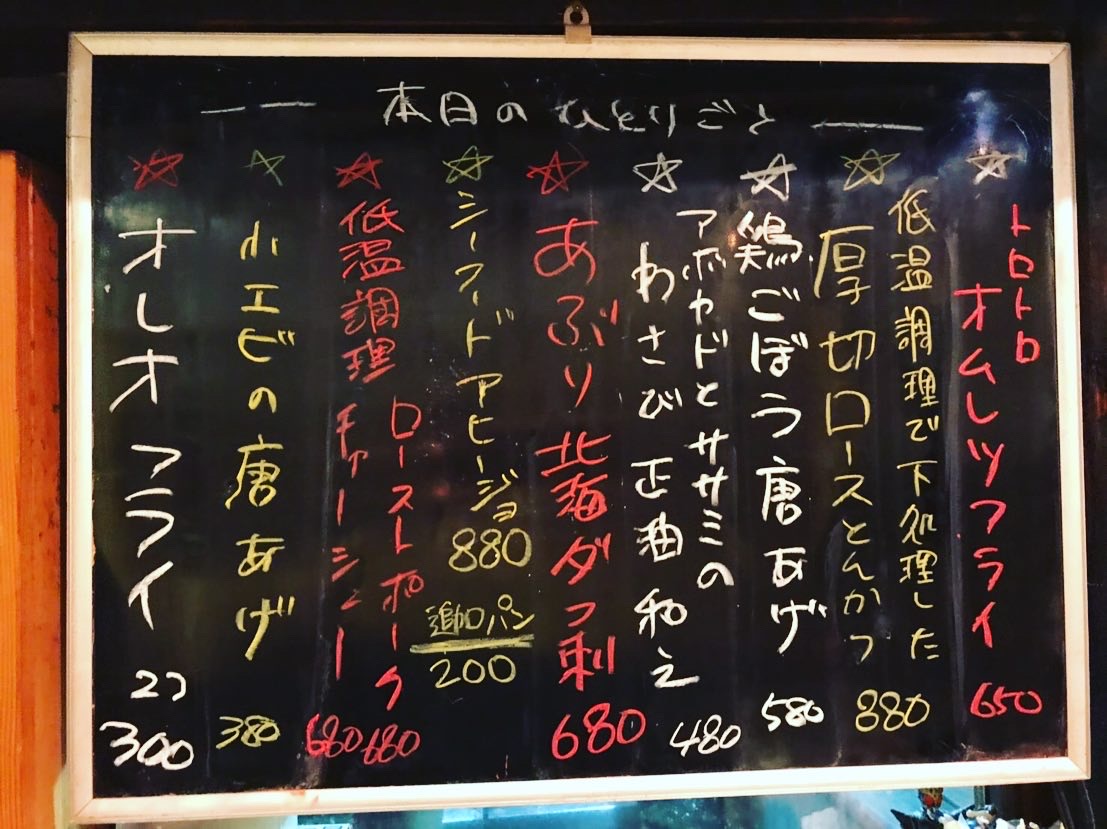 本日のひとりごと
☆トロトロ
オムレツフライ
650
☆低温調理で下処理した
厚切ロースとんかつ
880
☆鶏ごぼう唐あげ
580
☆アボカドとササミの
わさび正油和え
480
☆あぶり北海ダコ刺
680
☆シーフードアヒージョ
880
追加パン
200
☆低温調理
ローストポーク
680
チャーシュー
680
☆小エビの唐あげ
380
☆オレオフライ
2コ
300